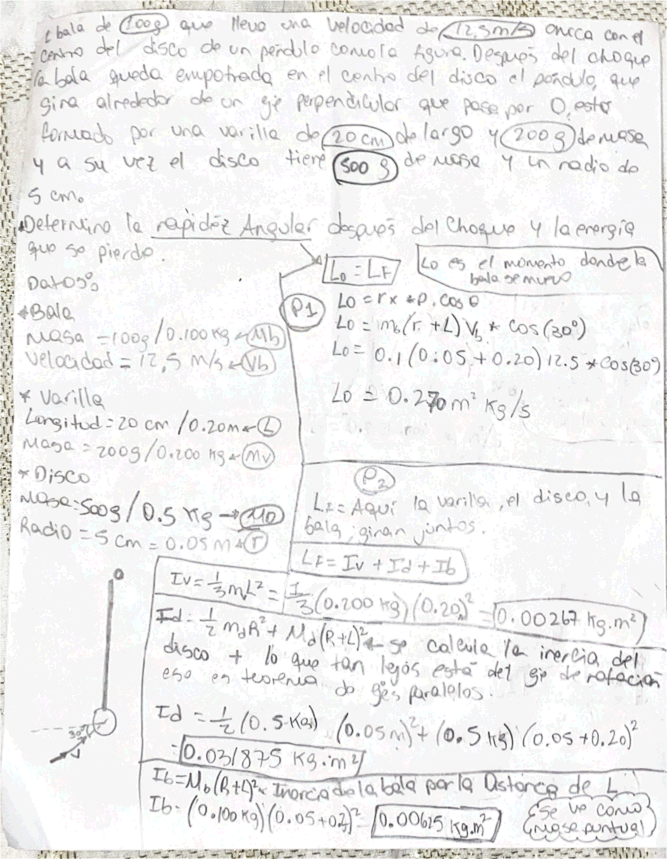 bala de 100g que lleva una velocidad de 12,5m/s choca con el
centro del disco de un péndulo como la figura. Después del choque
la bala queda empotrada en el centro del disco el péndulo, que
gira alrededor de un eje perpendicular que pasa por O, esta
formado por una varilla de 20cm de largo y 200g de masa
y a su vez el disco tiene 500 g de masa y un radio de
5 cm.
Determine la rapidez Angular después del choque y la energía
que se pierde.
Datos:
*Bala
masa = 100g / 0.100 kg Mb
Velocidad = 12,5 m/s Vb
* Varilla
Longitud = 20 cm / 0.20m L
Masa = 200g / 0.200 kg Mv
* Disco
Masa = 500g / 0.5 kg MD
Radio = 5 cm = 0.05 m r
30°
v
Lo = LF
Lo es el momento donde la
bala se mueve
P1
Lo = r x * P. cos θ
Lo = mb(r + L) Vb * cos(30°)
Lo = 0.1 (0.05 + 0.20) 12.5 * cos(30°)
Lo = 0.270 m² kg/s
P2
LF = Aquí la varilla, el disco, y la
bala, giran juntos.
LF = Iv + Id + Ib
Iv = 1/3 mL² = 1/3 (0.200 kg) (0.20)² = 0.00267 kg.m²
Id = 1/2 mdR² + Md(R+L)² se calcula la inercia del
disco + lo que tan lejos está del eje de rotación
eso es teorema de ejes paralelos.
Id = 1/2 (0.5 kg) (0.05m)² + (0.5 kg) (0.05 + 0.20)²
= 0.031875 kg.m²
Ib = Mb(R+L)² Inercia de la bala por la Distancia de L
Ib = (0.100 kg) (0.05+0.2)² = 0.00625 kg.m²
Se ve como
masa puntual